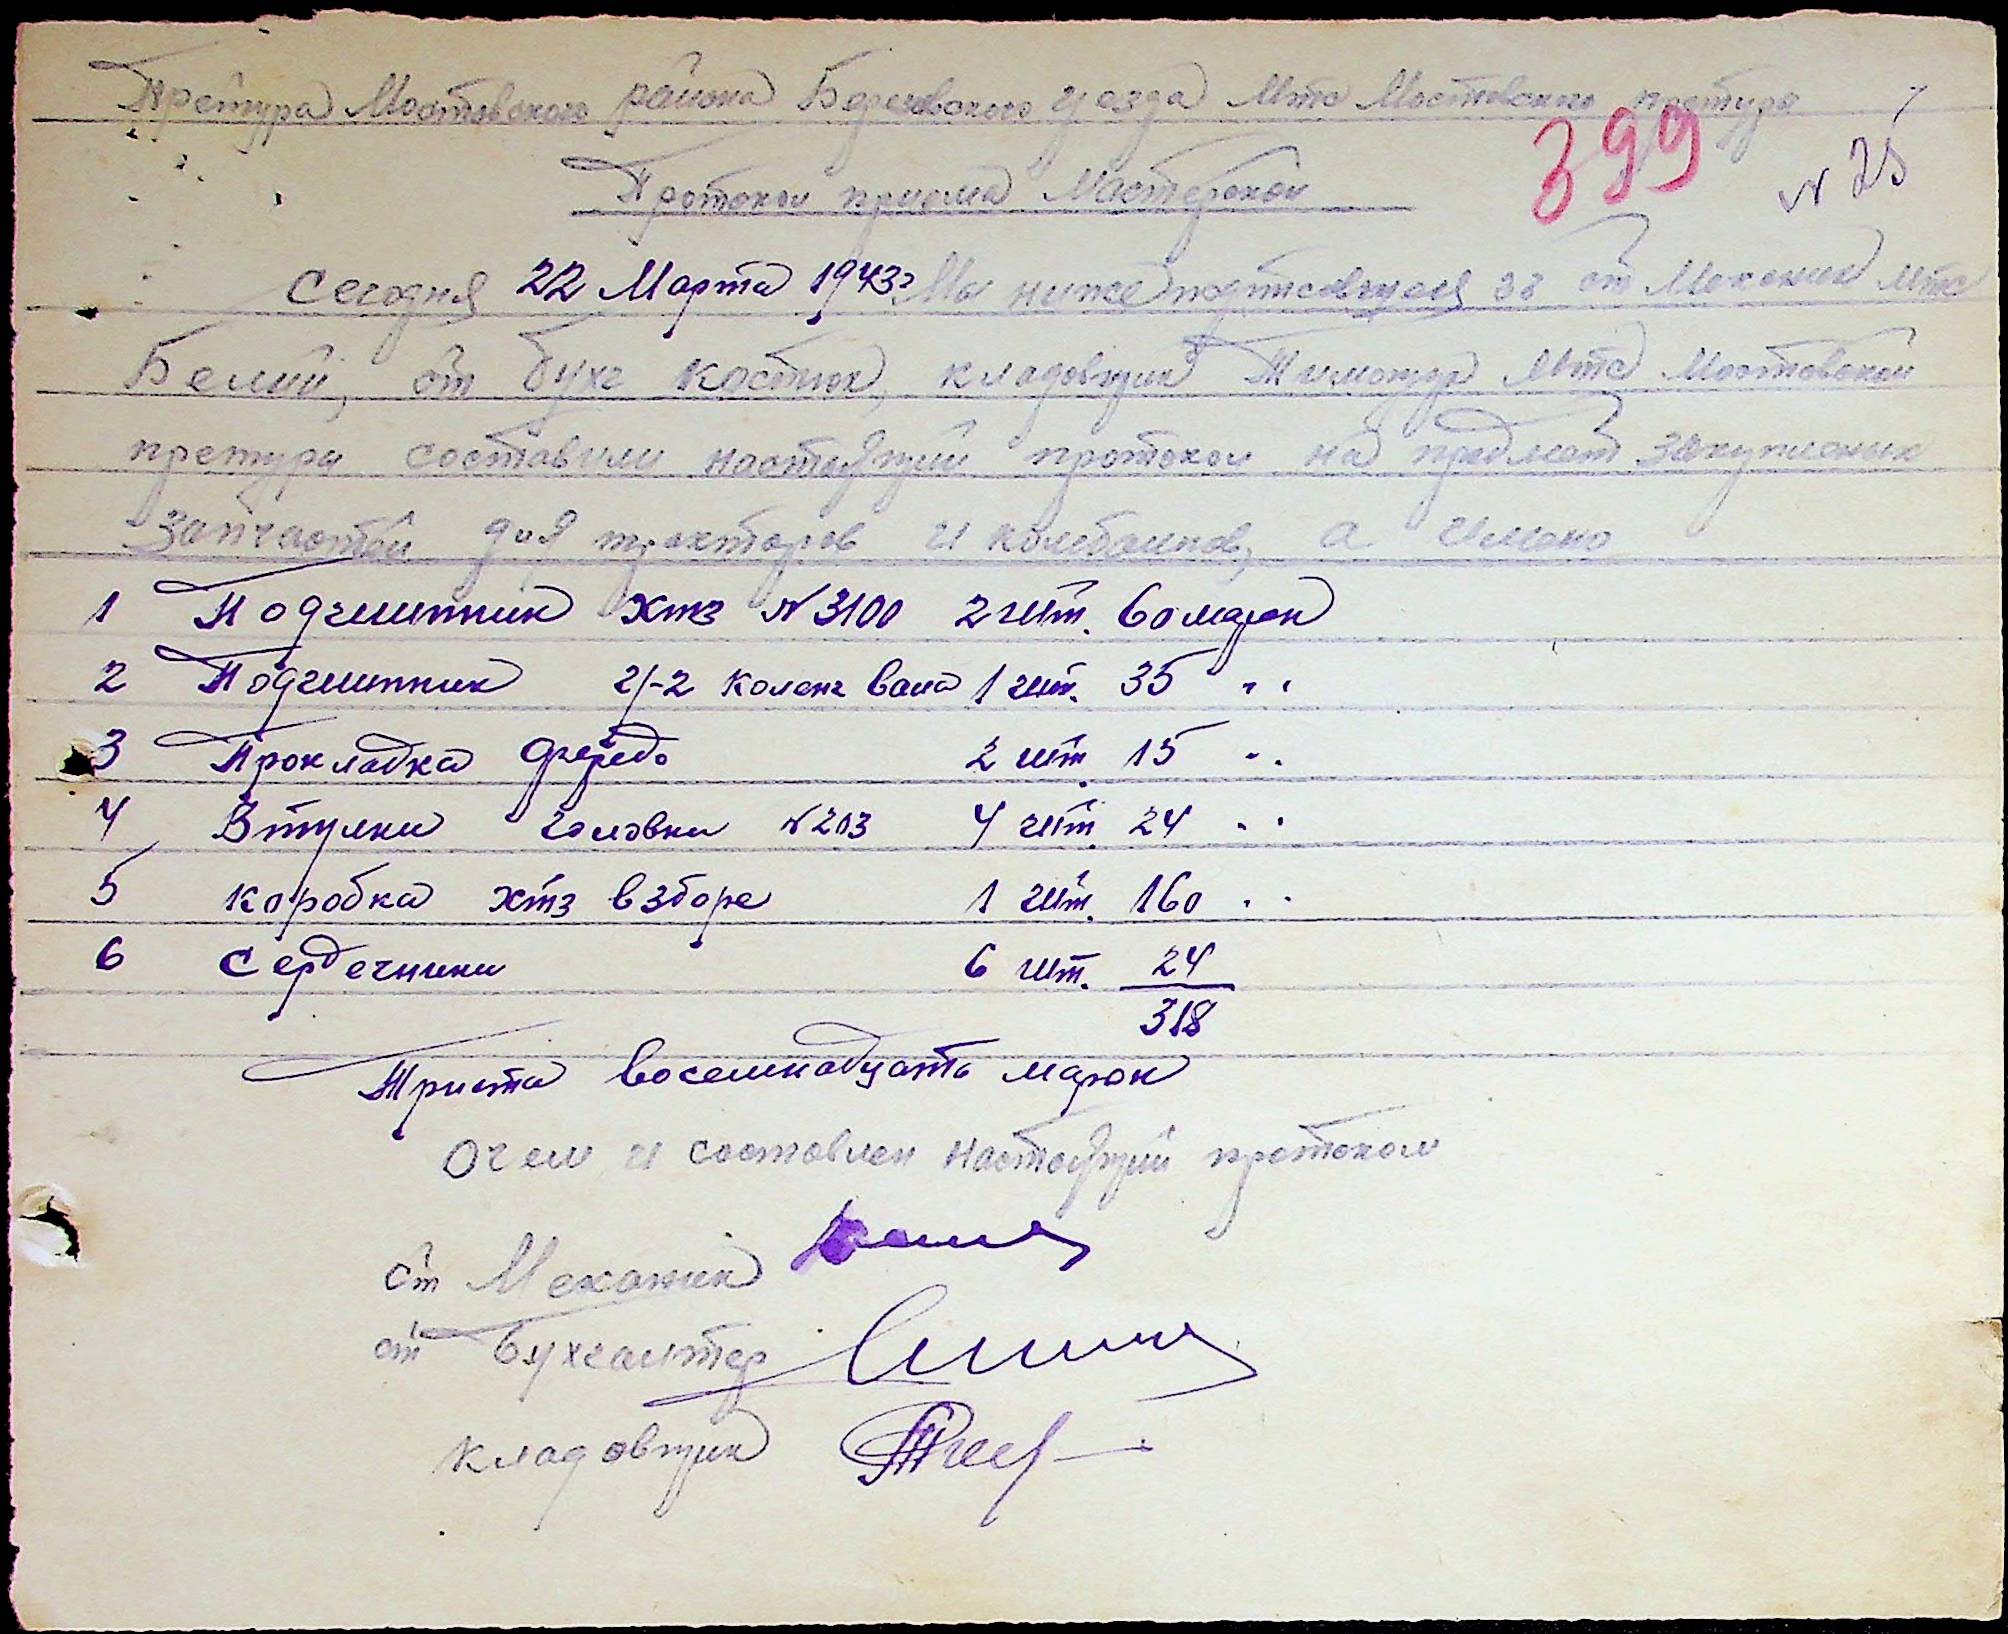 Претура Мостовского района Березовского уезда Мтс Мостовского претура
399
N 25
Протокол приема Мастерской
Сегодня 22 Марта 1943г Мы нижеподписавшиеся за ст Механик Мтс
Белий, ст бухг Костюк, кладовщик Тимощур Мтс Мостовской
претура составили настоящий протокол на предмет закупленых
запчастей для тракторов и комбайнов, а имено
1 Подшипник Хтз N 3100 2 шт. 60 марок
2 Подшипник У-2 коленч вала 1 шт. 35 " "
3 Прокладка 2 шт. 15 " "
4 Втулки головки N 203 4 шт. 24 " "
5 Коробка Хтз взборе 1 шт. 160 " "
6 Сердечники 6 шт. 24
318
Триста восемнадцать марок
Очем и составлен настоящий протокол
Ст Механик
ст Бухгалтер
Кладовщик